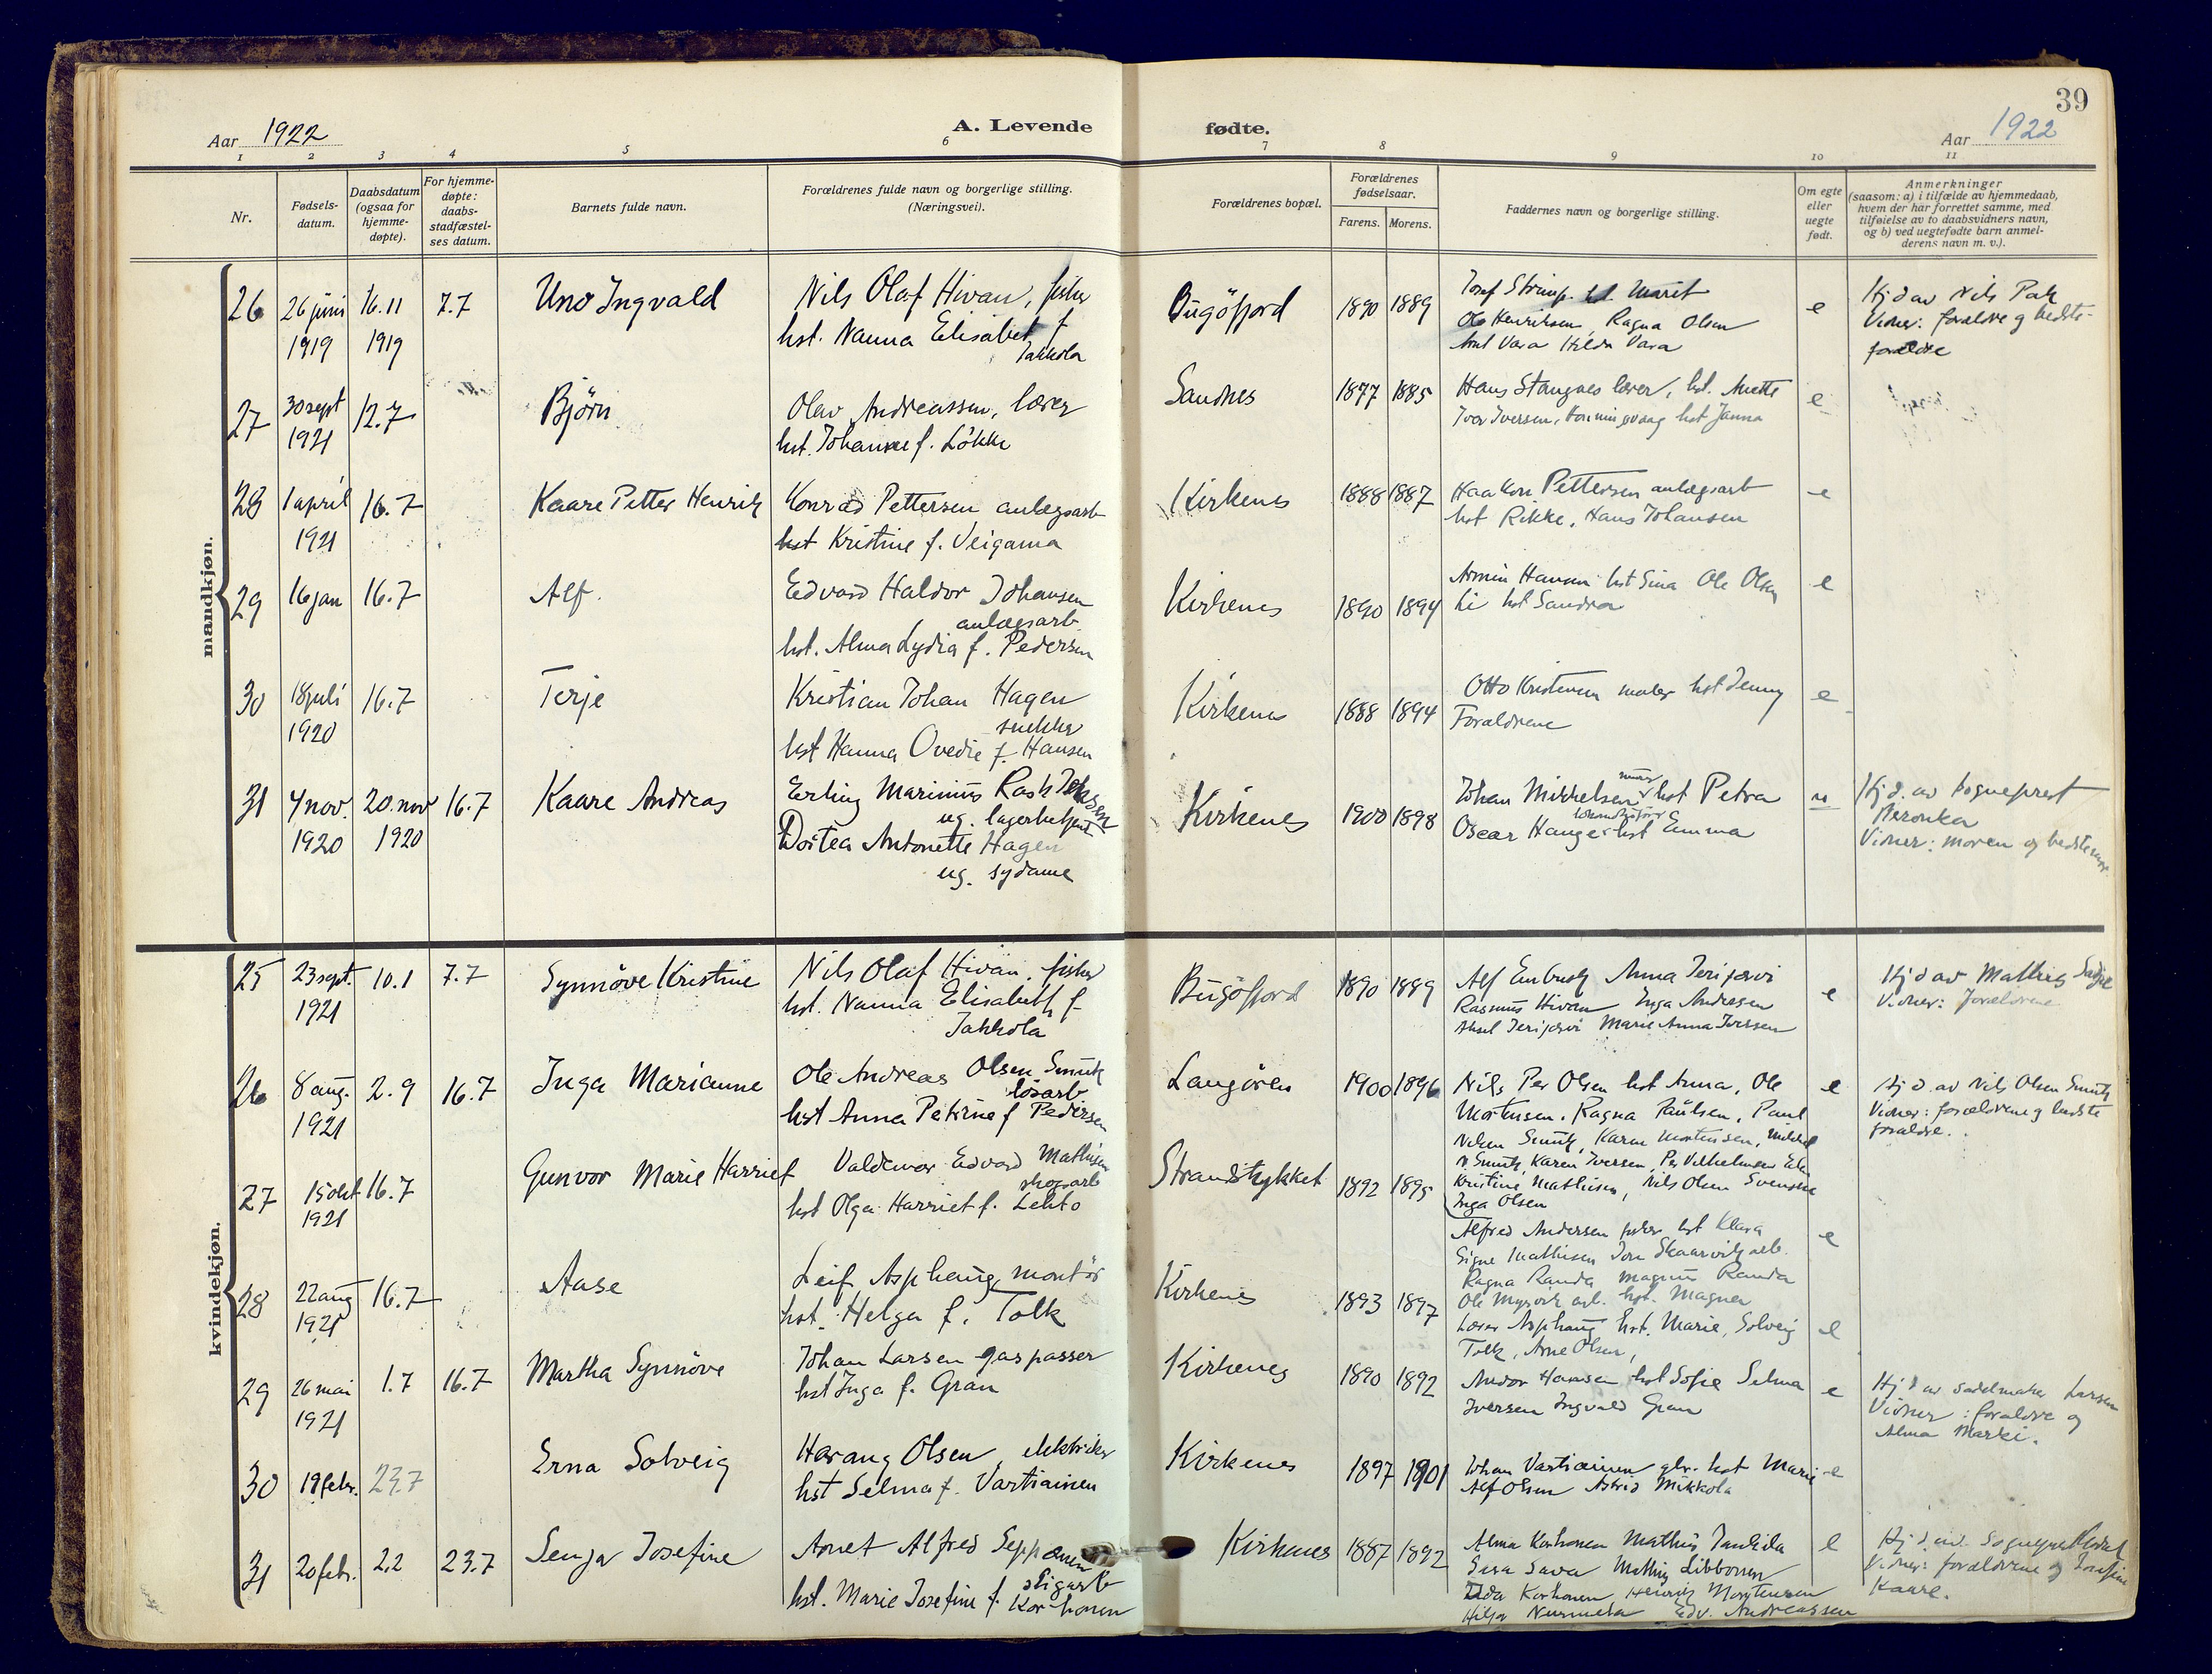 39
Aar 1922
A. Levende fødte.
Aar 1922
1 2 3 4 5 6 7 8 9 10 11
Nr.
Fødsels-
datum.
Daabsdatum
(ogsaa for
hjemme-
døpte).
For hjemme-
døpte:
daabs-
stadfæstel-
ses datum.
Barnets fulde navn.
Forældrenes fulde navn og borgerlige stilling.
(Næringsvei).
Forældrenes bopæl.
Forældrenes
fødselsaar.
Farens. Morens.
Faddernes navn og borgerlige stilling.
Om egte
eller
uegte
født.
Anmerkninger
(saasom: a) i tilfælde av hjemmedaab,
hvem der har forrettet samme, med
tilføielse av to daabsvidners navn,
og b) ved uegtefødte barn anmel-
derens navn m. v.).
mandkjøn.
26 26 juni 16.11 7.7 Uno Ingvald Nils Olaf Hivan, fisker Bugöfjord 1890 1889
1919 1919 hst. Nanna Elisabet f
Jakkola
Josef hst. Marit
Ole Henriksen, Ragna Olsen
Vara Hilda Vara
e
Hj d av Nils Pak
Vidner: forældre og bedste-
forældre
27 30 sept 12.7 Björn Olav Andreassen, lærer Sandnes 1877 1885
1921 hst. Johanne f. Lökke
Hans Stangnes lærer, hst. Anette
Ivar Iversen, Honningsvaag hst Janna
e
28 1 april 16.7 Kaare Petter Henrik Konrad Pettersen anlægsarb Kirkenes 1888 1887
1921 hst Kristine f. Veigama
Haakon Pettersen anlægsarb
hst Rikke, Hans Johansen
e
29 16 jan 16.7 Alf. Edvard Haldor Johansen Kirkenes 1890 1894
anlægsarb.
hst. Alma Lydia f. Pedersen
Armin Hansen hst Sina Ole Olsen
Li hst Sandra
e
30 18 juli 16.7 Terje Kristian Johan Hagen Kirkenes 1888 1894
1920 snekker
hst Hanna Ovedie f. Hansen
Otto Kristensen maler hst Jenny
Forældrene
e
31 7 nov. 20. nov 16.7 Kaare Andreas Erling Marinius Rash Kirkenes 1900 1898
1920 1920 ug. lagerbetjent
Dortea Antonette Hagen
ug. sydame
Johan Mikkelsen hst Petra
Oscar Hauge hst Emma
u
Hj d. av sogneprest
Vidner: moren og bedstemor
kvindekjøn.
25 23 sept. 10.1 7.7 Synnöve Kristine Nils Olaf Hivan, fisker Bugöfjord 1890 1889
1921 hst. Nanna Elisabeth f
Jakkola
Alf Anna Jerijærvi
Rasmus Hivan Inga Andresen
Aksel Jerijærvi Marie Anna Iversen
e
Hj d av Mathis
Vidner: forældrene
26 8 aug. 2.9 16.7 Inga Marianne Ole Andreas Olsen Smuk Langören 1900 1896
1921 lösarb
hst Anna Petrine f Pedersen
Nils Per Olsen hst Anna, Ole
Mortensen, Ragna Paulsen, Paul
Nilsen Smuk, Karen Mortensen, Mikkel
N Smuk, Karen Iversen, Per Vilhelmsen
Kristine Mathisen, Nils Olsen
Inga Olsen
e
Hj d. av Nils Olsen Smuk
Vidner: forældrene og bedste
forældre.
27 15 okt 16.7 Gunvor Marie Harriet Valdemar Edvard Mathisen Strandstykket 1892 1895
1921 skogsarb
hst Olga Harriet f. Lehto
Alfred Andersen hst Klara
Signe Mathisen
Ragna Randa Magnus Randa
e
28 22 aug 16.7 Aase Leif Asphaug montör Kirkenes 1893 1897
1921 hst. Helga f. Tolk
Ole Myrvik arb. hst. Magna
Lærer Asphaug hst. Marie, Solveig
Tolk, Arne Olsen,
e
29 26 mai 1.7 16.7 Martha Synnöve Johan Larsen gaspasser Kirkenes 1890 1892
1921 hst Inga f. Gran
Andor Hansen hst Sofie Selma
Iversen Ingvald Gran
e
Hj d av sadelmaker Larsen
Vidner: forældre og
Alma Marki.
30 19 febr. 23.7 Erna Solveig Harang Olsen, elektriker Kirkenes 1897 1901
hst Selma f. Vartiainen
Johan Vartiainen gbr. hst Marie
Alf Olsen Astrid Mikkola
e
31 20 febr. 2.2 23.7 Senja Josefine Arnet Alfred Seppænen Kirkenes 1887 1892
hst. Marie Josefine f. Korhonen
Alma Korhonen Mathis
Mathis
Korhonen Henrik Mortensen
Hilja Edv. Andreassen
e
Vidner: forældrene og Josefine
Kaare.